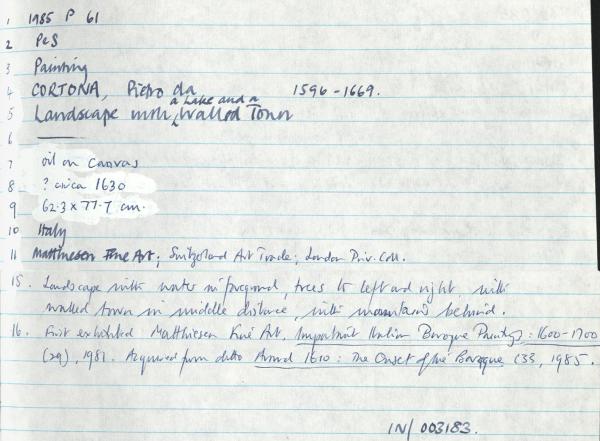 1 1985 P 61
2 P&S
3 Painting
4 CORTONA, Pietro da 1596-1669.
a Lake and a
5 Landscape with Walled Town
6
7 oil on Canvas
8 ? circa 1630
9 62.3 x 77.7 cm.
10 Italy
11 Matthiesen Fine Art; Switzerland Art Trade; London Priv. Coll.
15. Landscape with water in foreground, trees to left and right with
walled town in middle distance, with mountains behind.
16. First exhibited Matthiesen Fine Art, Important Italian Baroque Paintings: 1600-1700
(29), 1981. Acquired from ditto Around 1610: The Onset of the Baroque (33, 1985.
IN/003183.